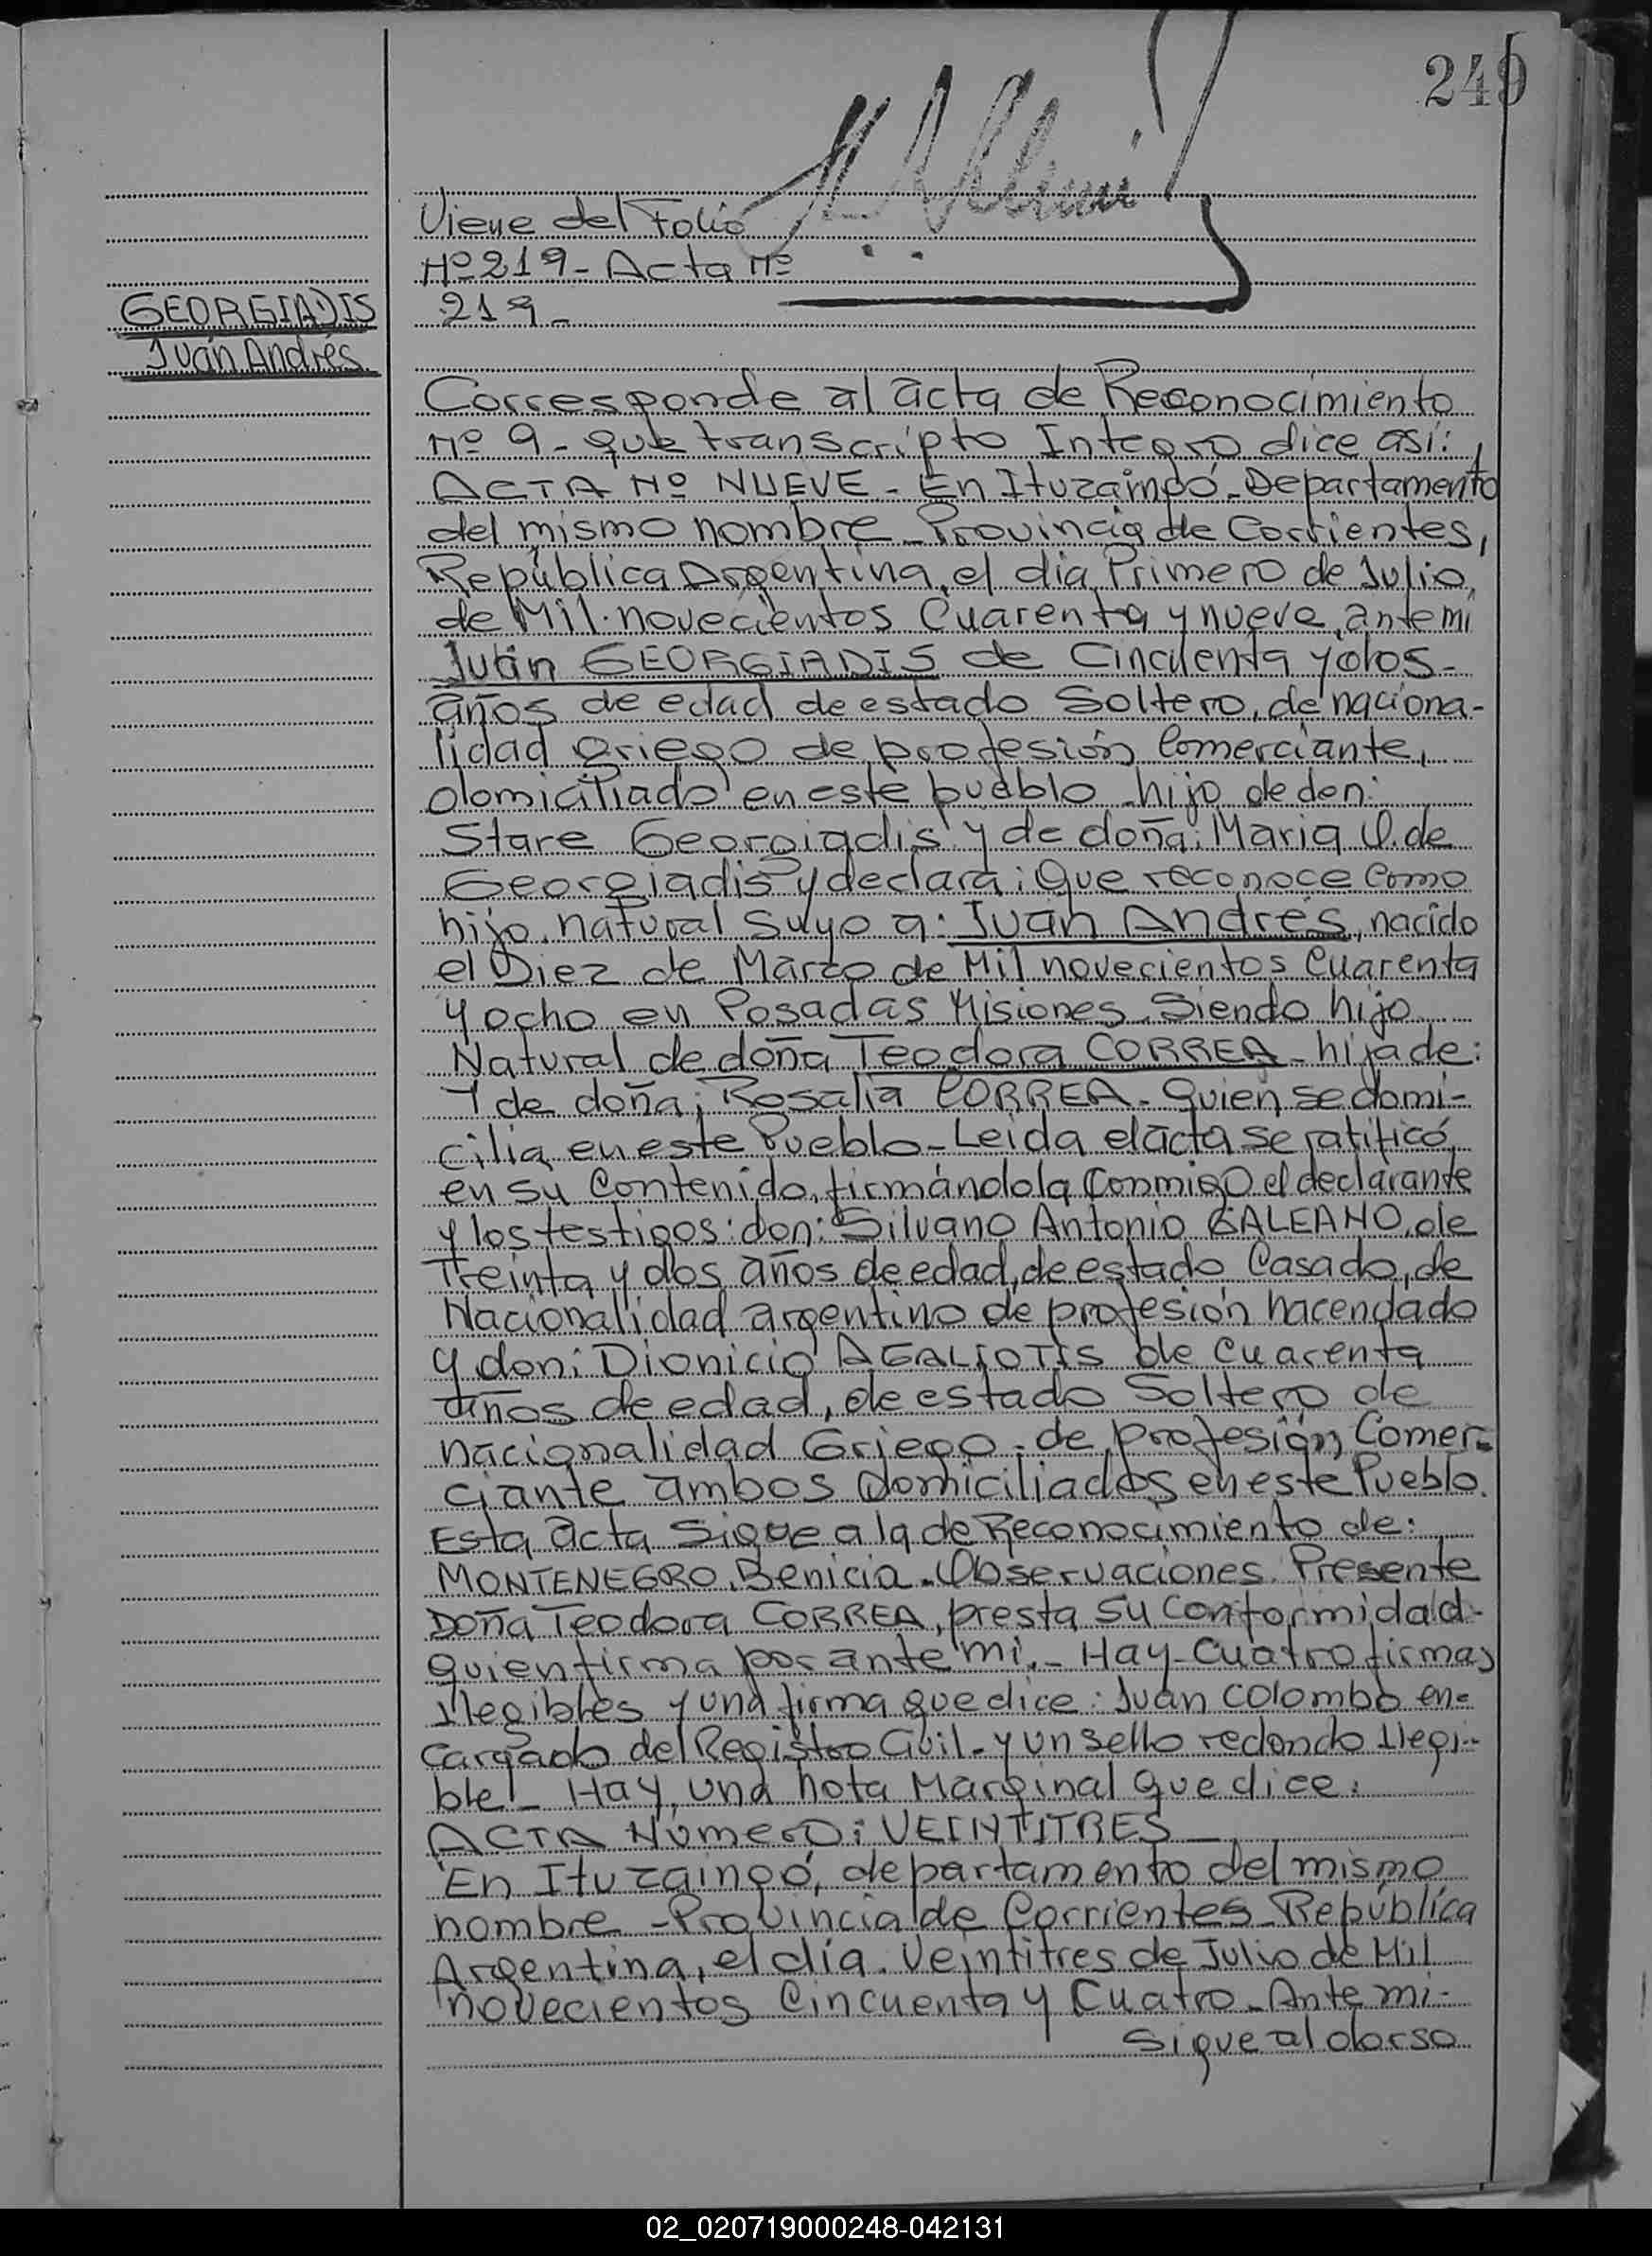 249
Viene del Folio
Nº 219- Acta Nº
219-
GEORGIADIS
Juan Andrés
Corresponde al acta de Reconocimiento
Nº 9- que transcripto Integro dice así:
ACTA Nº NUEVE - En Ituzaingó - Departamento
del mismo nombre - Provincia de Corrientes,
República Argentina, el día Primero de Julio,
de Mil novecientos Cuarenta y nueve, ante mí
Juan GEORGIADIS de Cincuenta y dos-
años de edad de estado Soltero, de naciona-
lidad griego de profesión Comerciante,
domiciliado en este pueblo - hijo de don:
Stare Georgiadis y de doña: Maria U. de
Georgiadis y declara: Que reconoce Como
hijo natural suyo a: Juan Andrés, nacido
el Diez de Marzo de Mil novecientos Cuarenta
y ocho en Posadas Misiones. Siendo hijo
Natural de doña Teodora CORREA - hija de:
Y de doña; Rosalía CORREA - Quien se domi-
cilia en este Pueblo - Leida el acta se ratificó
en su Contenido, firmándola Conmigo el declarante
y los testigos: don: Silvano Antonio GALEANO, de
Treinta y dos años de edad, de estado Casado, de
Nacionalidad argentino de profesión hacendado
y don: Dionicio AGALIOTIS de Cuarenta
años de edad, de estado Soltero de
nacionalidad Griego - de profesión Comer-
ciante ambos domiciliados en este Pueblo.
Esta acta Sigue a la de Reconocimiento de:
MONTENEGRO, Benicia - Observaciones: Presente
Doña Teodora CORREA, presta su conformidad-
quien firma por ante mí. - Hay - Cuatro firmas
Ilegibles y una firma que dice: Juan Colombo en-
cargado del Registro Civil - y un sello redondo Ilegi-
ble! - Hay, una nota Marginal que dice:
ACTA Número: VEINTITRES -
En Ituzaingó, departamento del mismo
nombre - Provincia de Corrientes - República
Argentina, el día. Veintitres de Julio de Mil
novecientos Cincuenta y Cuatro - Ante mi-
Sigue al dorso
02_020719000248-042131